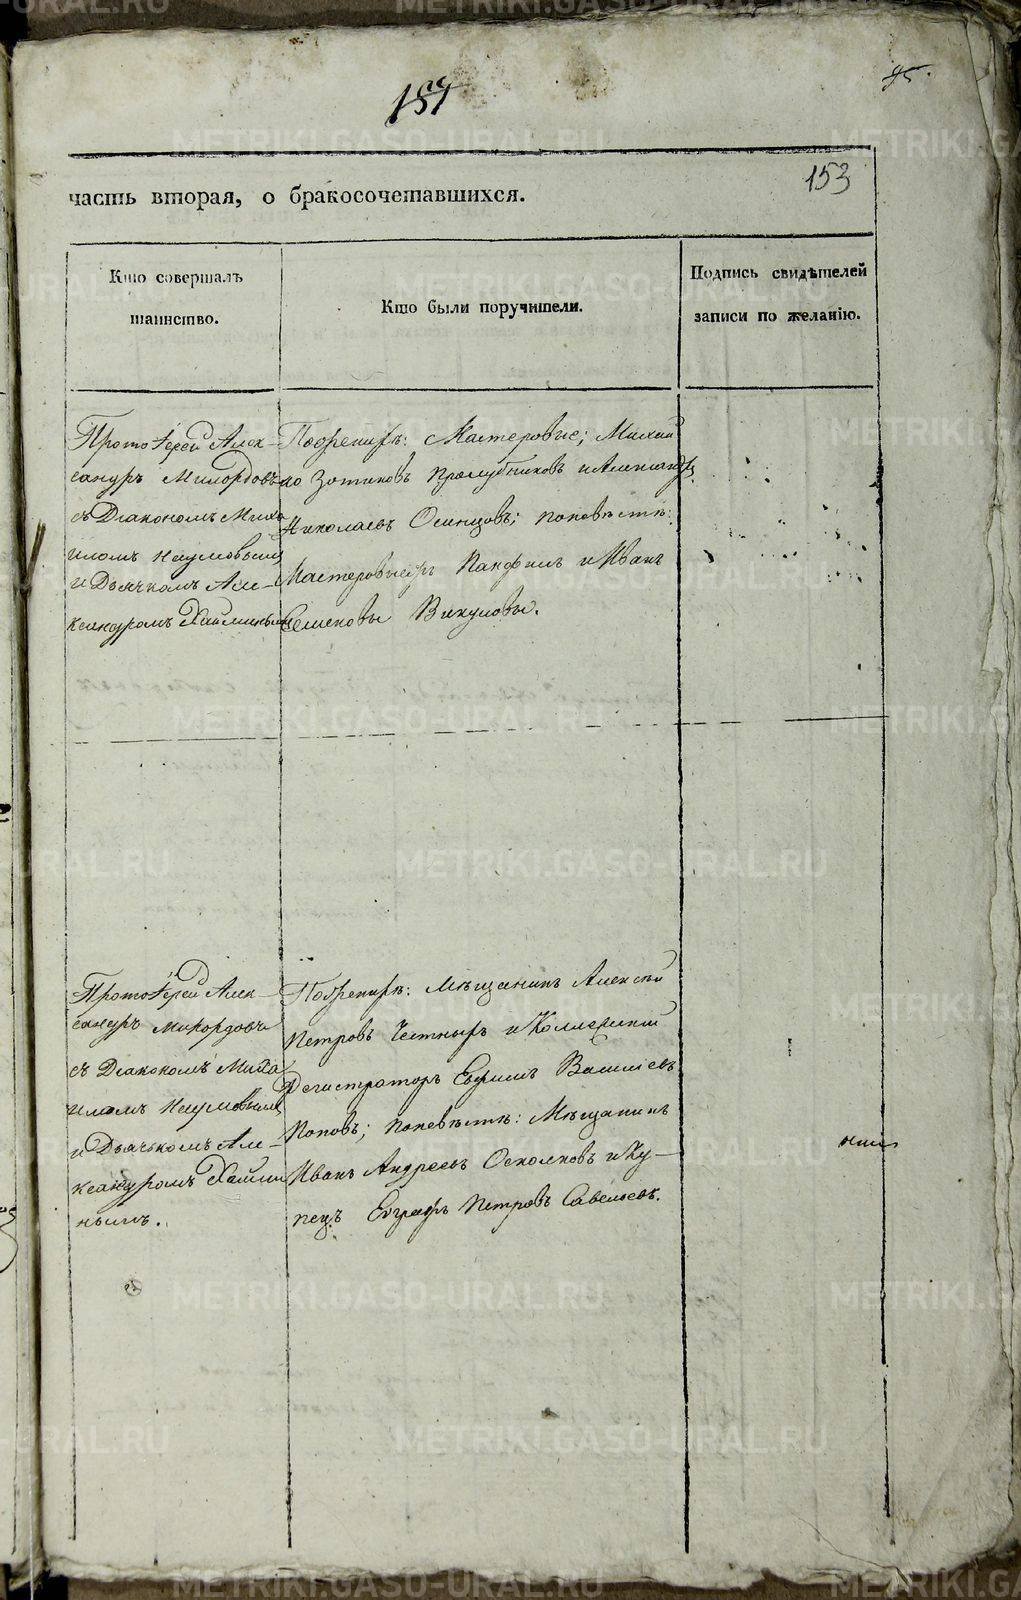 95.
159
153
часть вторая, о бракосочетавшихся.
Кто совершалъ
таинство.
Кто были поручители.
Подпись свидѣтелей
записи по желанію.
Протоіерей Алек-
сандръ Милордовъ
съ Діакономъ Миха
иломъ Наумовымъ
и Дьячкомъ Але-
ксандромъ
По женихѣ: Мастеровые; Михаи
ло Зотиковъ и Александръ
Николаевъ Осинцовъ; по невѣстѣ:
Мастеровые Панфилъ и Иванъ
Семеновы Викуловы.
Протоіерей Алек-
сандръ Милордовъ
съ Діакономъ Миха
иломъ Наумовымъ
и Дьячкомъ Але-
ксандромъ
нымъ.
По женихѣ: Мѣщанинъ Алексѣй
Петровъ и Коллежскій
Регистраторъ Ефимъ Васильевъ
Поповъ; по невѣстѣ: Мѣщанинъ
Иванъ Андреевъ Осколковъ и Ку-
пецъ Евграфъ Петровъ Савельевъ.
METRIKI.GASO-URAL.RU